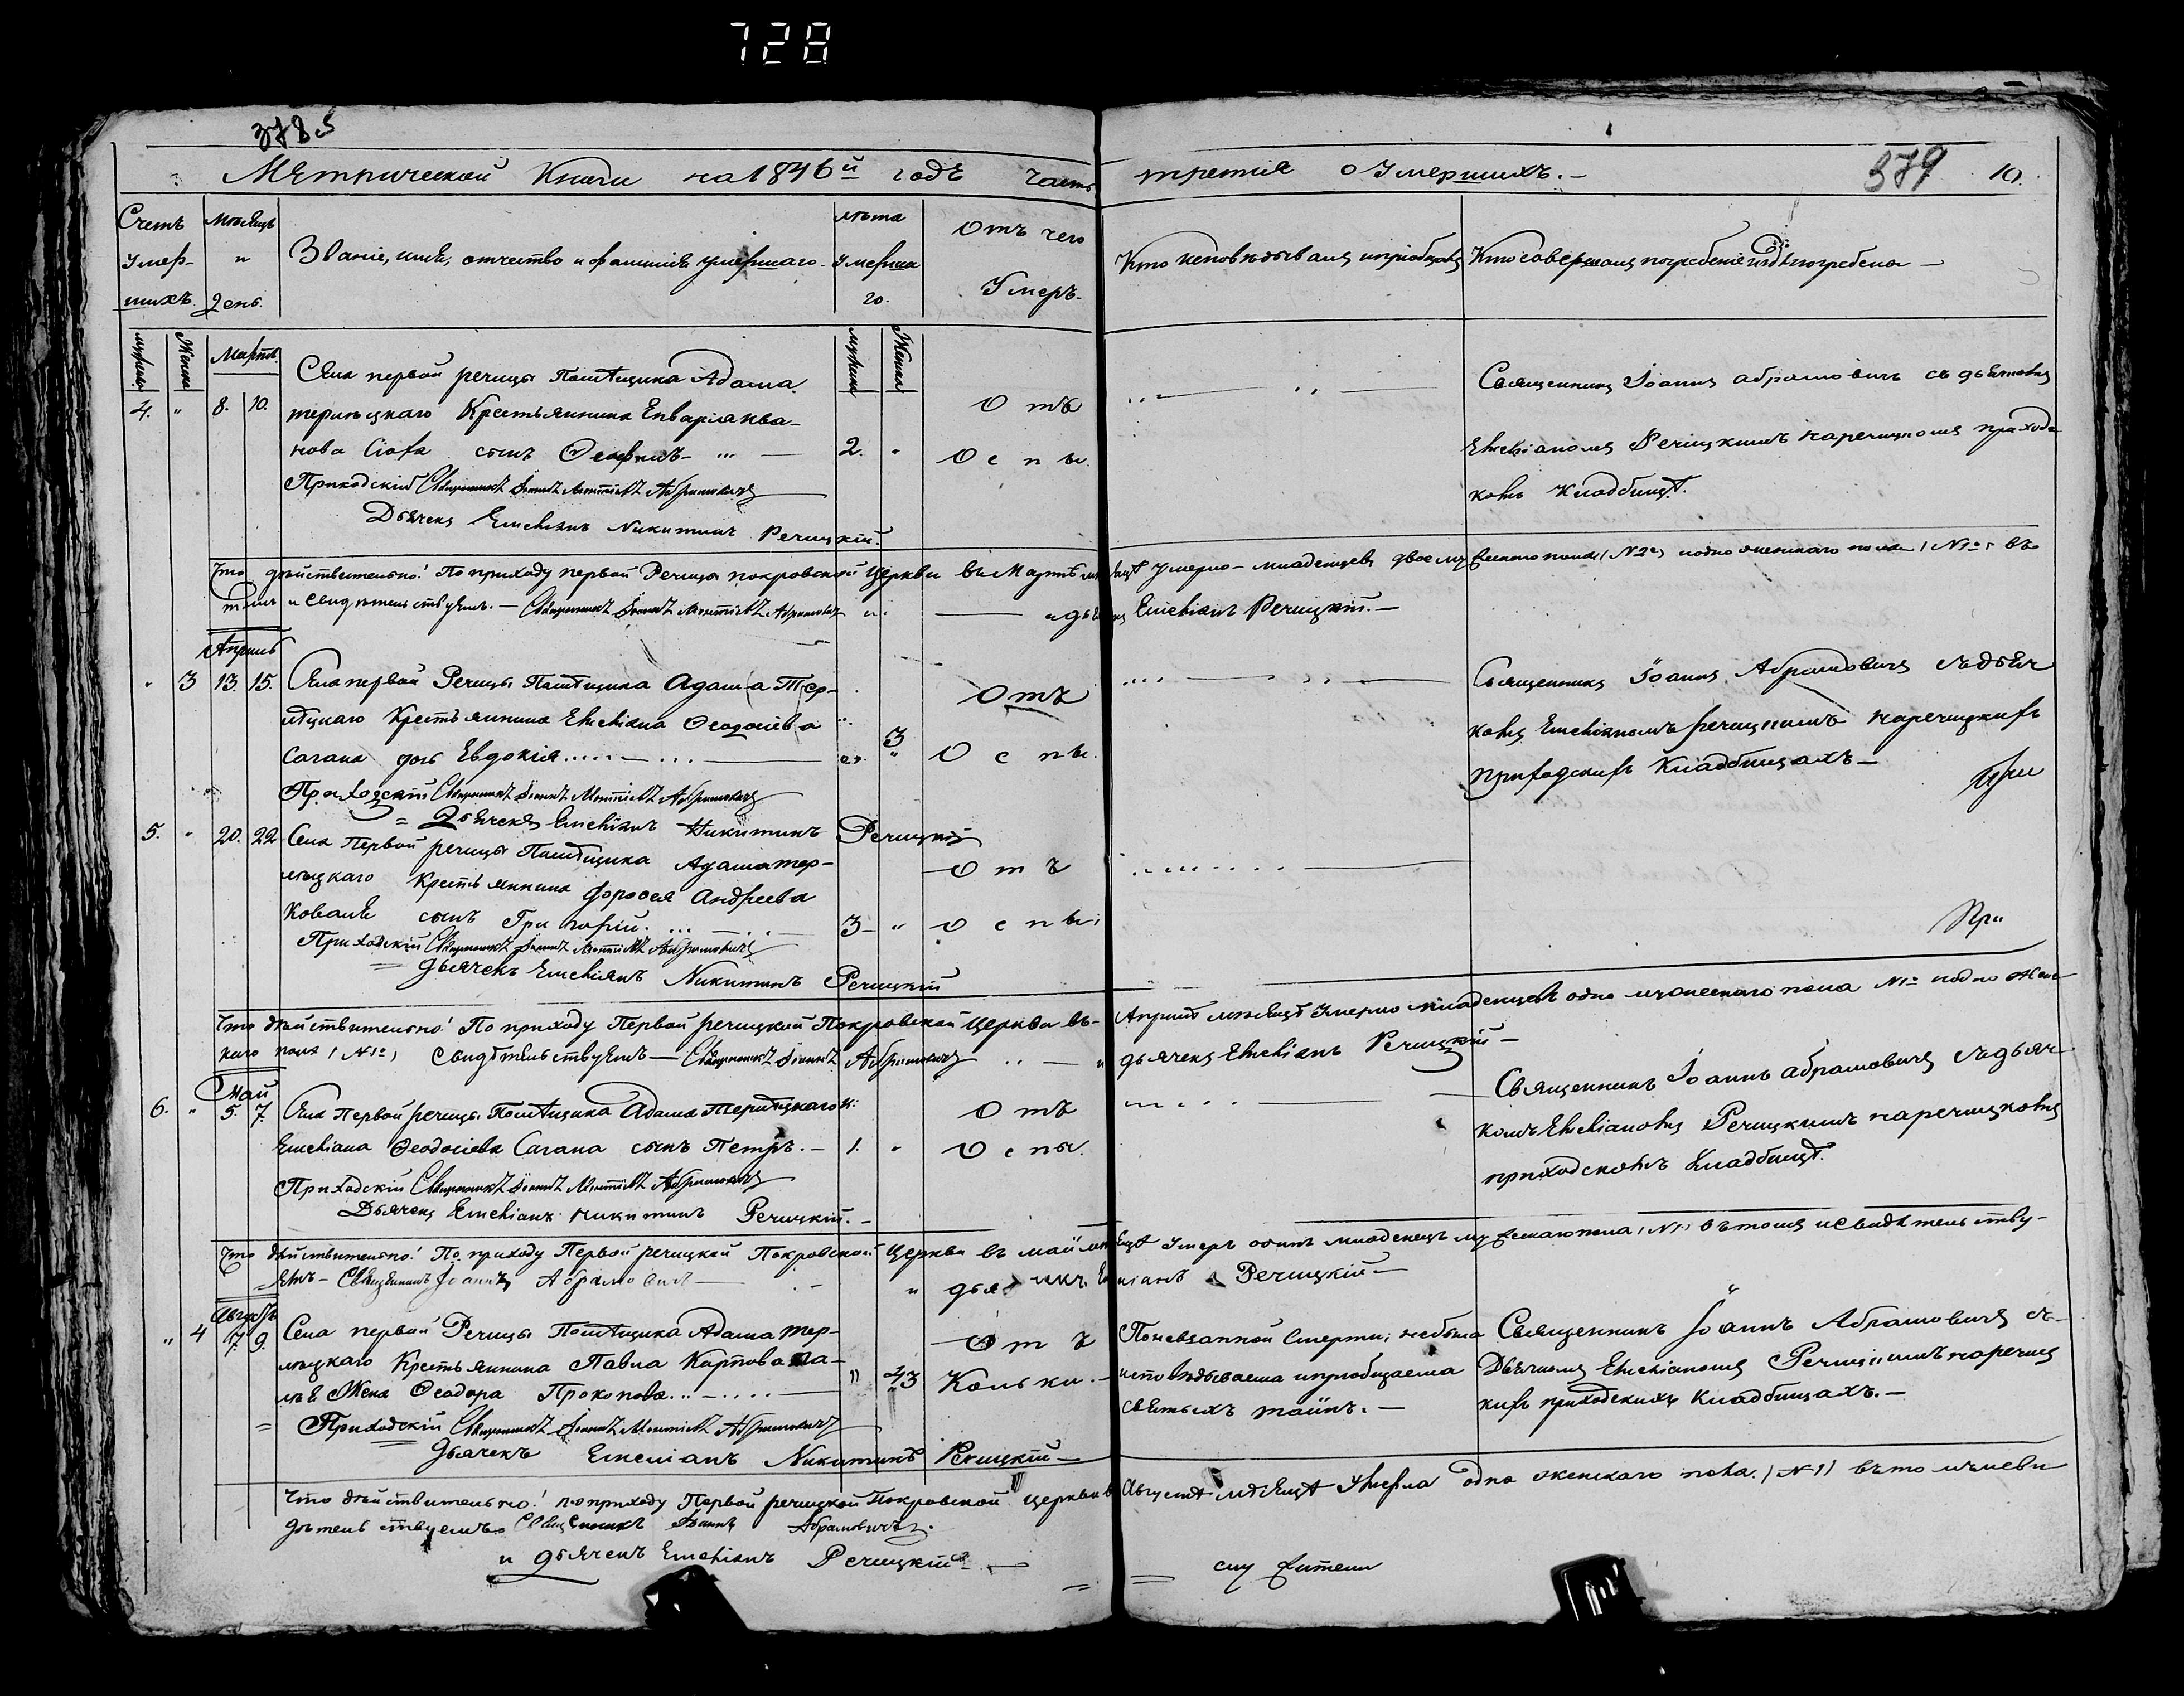 728
378.5
Метрической Книги на 1846й годъ часть третія о Умершихъ.
379 10.
Счетъ Умер- шихъ.
Мѣсяцъ и день.
Званіе, имя, отчество и фамилія умершаго.
лѣта умерша го.
Отъ чего Умеръ.
Кто исповѣдывалъ и пріобщалъ
Кто совершалъ погребеніе и гдѣ погребены
мужска Женска
Мартъ.
мужска Женска
4. " 8. 10.
Села первой речицы Помѣщика Адама
терлѣцкаго Крестьянина
сынъ
2. "
Отъ
Оспы.
Приходскій Священникъ Іоаннъ Абрамовичъ
Дьячекъ Емеліанъ Никитинъ Речицкій.
Священникъ Іоаннъ Абрамовичъ съ дьячкомъ
Емеліаномъ Речицкимъ на речицкомъ приходс
комъ кладбищѣ.
Что дѣйствительно! По приходу первой Речицы покровской Церкви въ Мартѣ мѣсяцѣ Умерло младенцевъ двое мужескаго пола (№2) и одно женскаго пола (№1) въ
томъ и свидѣтельствуемъ. — Священникъ Іоаннъ Абрамовичъ и дьячекъ Емеліанъ Речицкій. —
Апрель
" 3 13. 15.
Села первой Речицы Помѣщика Адама Тер-
лѣцкаго Крестьянина Емеліана Ѳеодосіева
Сагана дочь Евдокія
3
Отъ
Оспы.
Приходскій Священникъ Іоаннъ Абрамовичъ
Дьячекъ Емеліанъ Никитинъ Речицкій
Священникъ Іоаннъ Абрамовичъ съ дьяч
комъ Емеліаномъ речицкимъ на речицкихъ
приходскихъ Кладбищахъ —
5. " 20. 22
Села Первой речицы Помѣщика Адама тер-
лѣцкаго Крестьянина Дороѳея Андреева
Ковале сынъ Григорій.
3 — "
Отъ
оспы;
Приходскій Священникъ Іоаннъ Абрамовичъ
дьячекъ Емеліянъ Никитинъ Речицкій
При
Что дѣйствительно! По приходу Первой речицкой Покровской Церкви въ Априлѣ мѣсяцѣ Умерло младенцевъ одно мужескаго пола №1 и одно женс
каго пола (№1) свидѣтельствуемъ — Священникъ Іоаннъ Абрамовичъ и дьячекъ Емеліанъ Речицкій —
Май
6. " 5. 7.
Села Первой речицы Помѣщика Адама Терлѣцкаго к:
Емеліана Ѳеодосіева Сагана сынъ Петръ. —
1. "
Отъ
Оспы.
Приходскій Священникъ Іоаннъ Абрамовичъ
Дьячекъ Емеліанъ никитинъ Речицкій. —
Священникъ Іоаннъ абрамовичъ съ дьяч
комъ Емеліаномъ Речицкимъ на речицкомъ
приходскомъ Кладбищѣ.
Что дѣйствительно! По приходу Первой речицкой Покровской Церкви въ маи мѣсяцѣ Умеръ одинъ младенецъ мужескаго пола (№1) въ томъ и свидѣтельству-
емъ — Священникъ Іоаннъ Абрамовичъ — и дьячекъ Емеліанъ Речицкій —
Августъ
" 4 7. 9.
Села первой Речицы Помѣщика Адама тер-
лѣцкаго Крестьянина Павла Карпова
Жена Ѳеодора Прокопова
" 43
Отъ
Кольки. —
По невзапной Смерти; не была
исповѣдываема и приобщаема
святыхъ таинъ. —
Священникъ Іоаннъ Абрамовичъ съ —
Дьячкомъ Емеліаномъ Речицкимъ на речиц
кихъ приходскихъ Кладбищахъ. —
Приходскій Священникъ Іоаннъ Абрамовичъ
дьячекъ Емеліанъ Никитинъ Речицкій —
Что дѣйствительно! по приходу Первой речицкой Покровской церкви въ Августѣ мѣсяцѣ Умерла одна женскаго пола. (№1) въ томъ и сви
дѣтельствуемъ Священникъ Іоаннъ Абрамовичъ.
и дьячекъ Емеліанъ Речицкій —